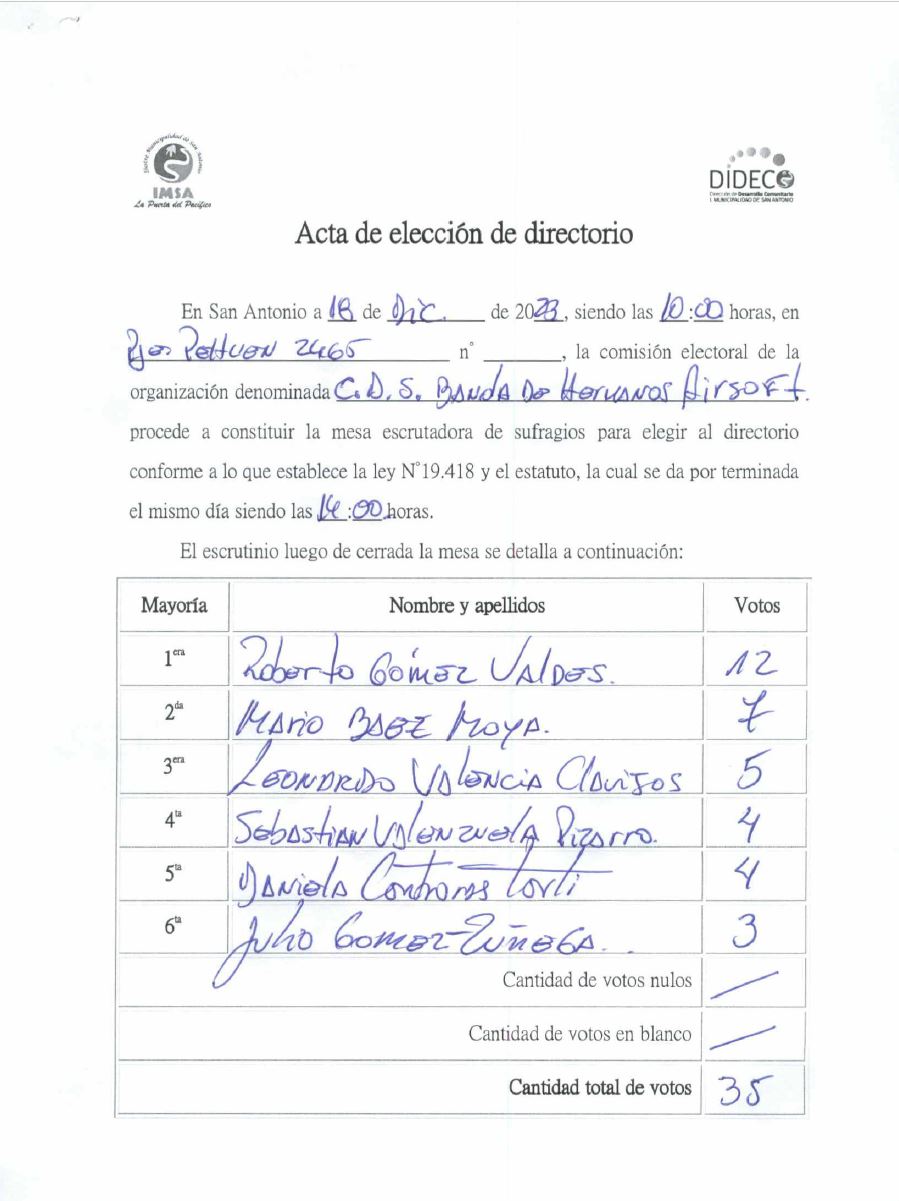 Ilustre Municipalidad de San Antonio
IMSA
La Puerta del Pacífico
DIDECO
Dirección de Desarrollo Comunitario
I. MUNICIPALIDAD DE SAN ANTONIO
Acta de elección de directorio
En San Antonio a 18 de Dic. de 2023, siendo las 10:00 horas, en
2465 n° , la comisión electoral de la
organización denominada C.D.S. BANDA De HerMANOS AirsoFt.
procede a constituir la mesa escrutadora de sufragios para elegir al directorio
conforme a lo que establece la ley N°19.418 y el estatuto, la cual se da por terminada
el mismo día siendo las 14:00 horas.
El escrutinio luego de cerrada la mesa se detalla a continuación:
Mayoría Nombre y apellidos Votos
1era Roberto Gómez Valdes. 12
2da Mario Baez Moya. 7
3era Leonardo Valencia Clavijos 5
4ta Sebastian Valenzuela Pizarro. 4
5ta Daniela Contreras Torti 4
6ta Julio Gomez Zuñega. 3
Cantidad de votos nulos /
Cantidad de votos en blanco /
Cantidad total de votos 35